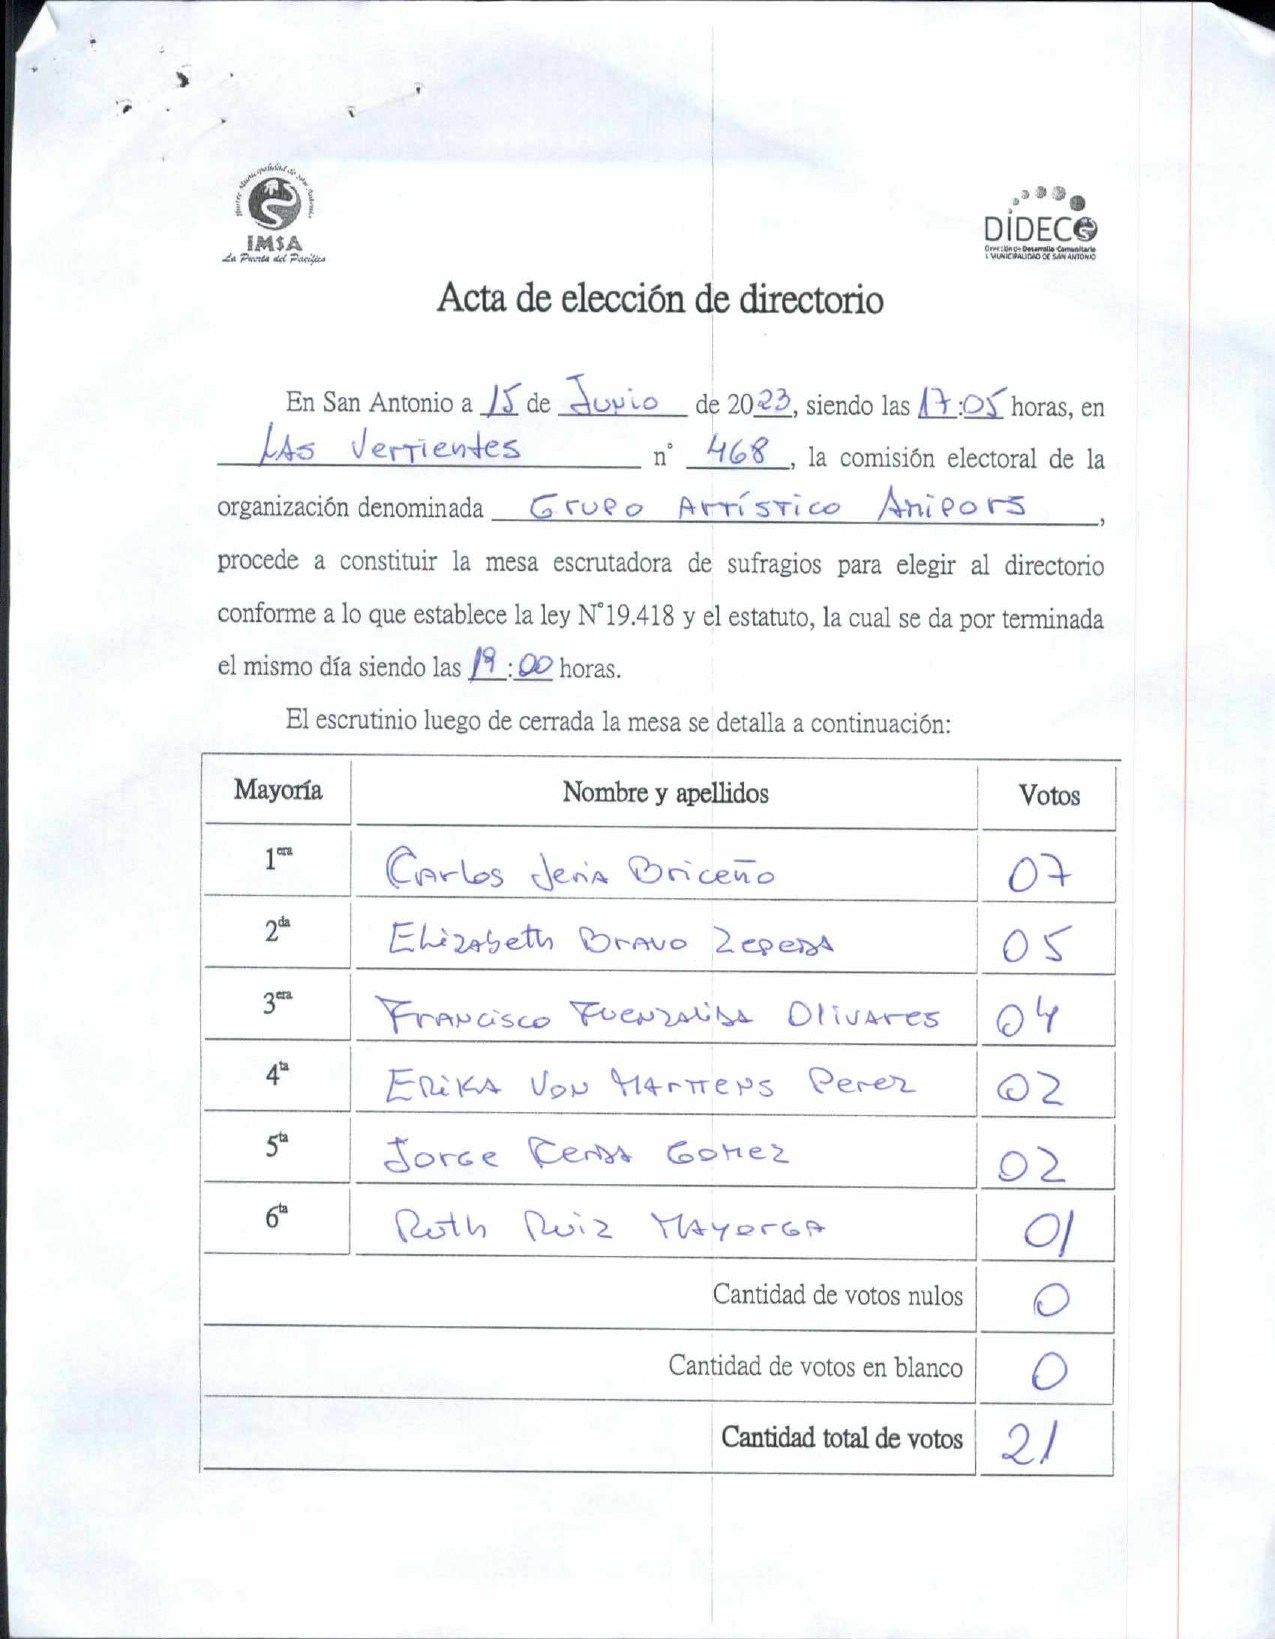 Ilustre Municipalidad de San Antonio
IMSA
La Puerta del Pacífico
DIDECO
Dirección de Desarrollo Comunitario
I. MUNICIPALIDAD DE SAN ANTONIO
Acta de elección de directorio
En San Antonio a 15 de Junio de 2023, siendo las 17:05 horas, en
LAS Vertientes n° 468, la comisión electoral de la
organización denominada Grupo Artístico Anipors,
procede a constituir la mesa escrutadora de sufragios para elegir al directorio
conforme a lo que establece la ley N°19.418 y el estatuto, la cual se da por terminada
el mismo día siendo las 19:00 horas.
El escrutinio luego de cerrada la mesa se detalla a continuación:
Mayoría Nombre y apellidos Votos
1era Carlos Jeria Briceño 07
2da Elizabeth Bravo Zepeda 05
3era Francisco Fuenzalida Olivares 04
4ta Erika Von Marttens Perez 02
5ta Jorge Cerda Gomez 02
6ta Ruth Ruiz Mayorga 01
Cantidad de votos nulos 0
Cantidad de votos en blanco 0
Cantidad total de votos 21